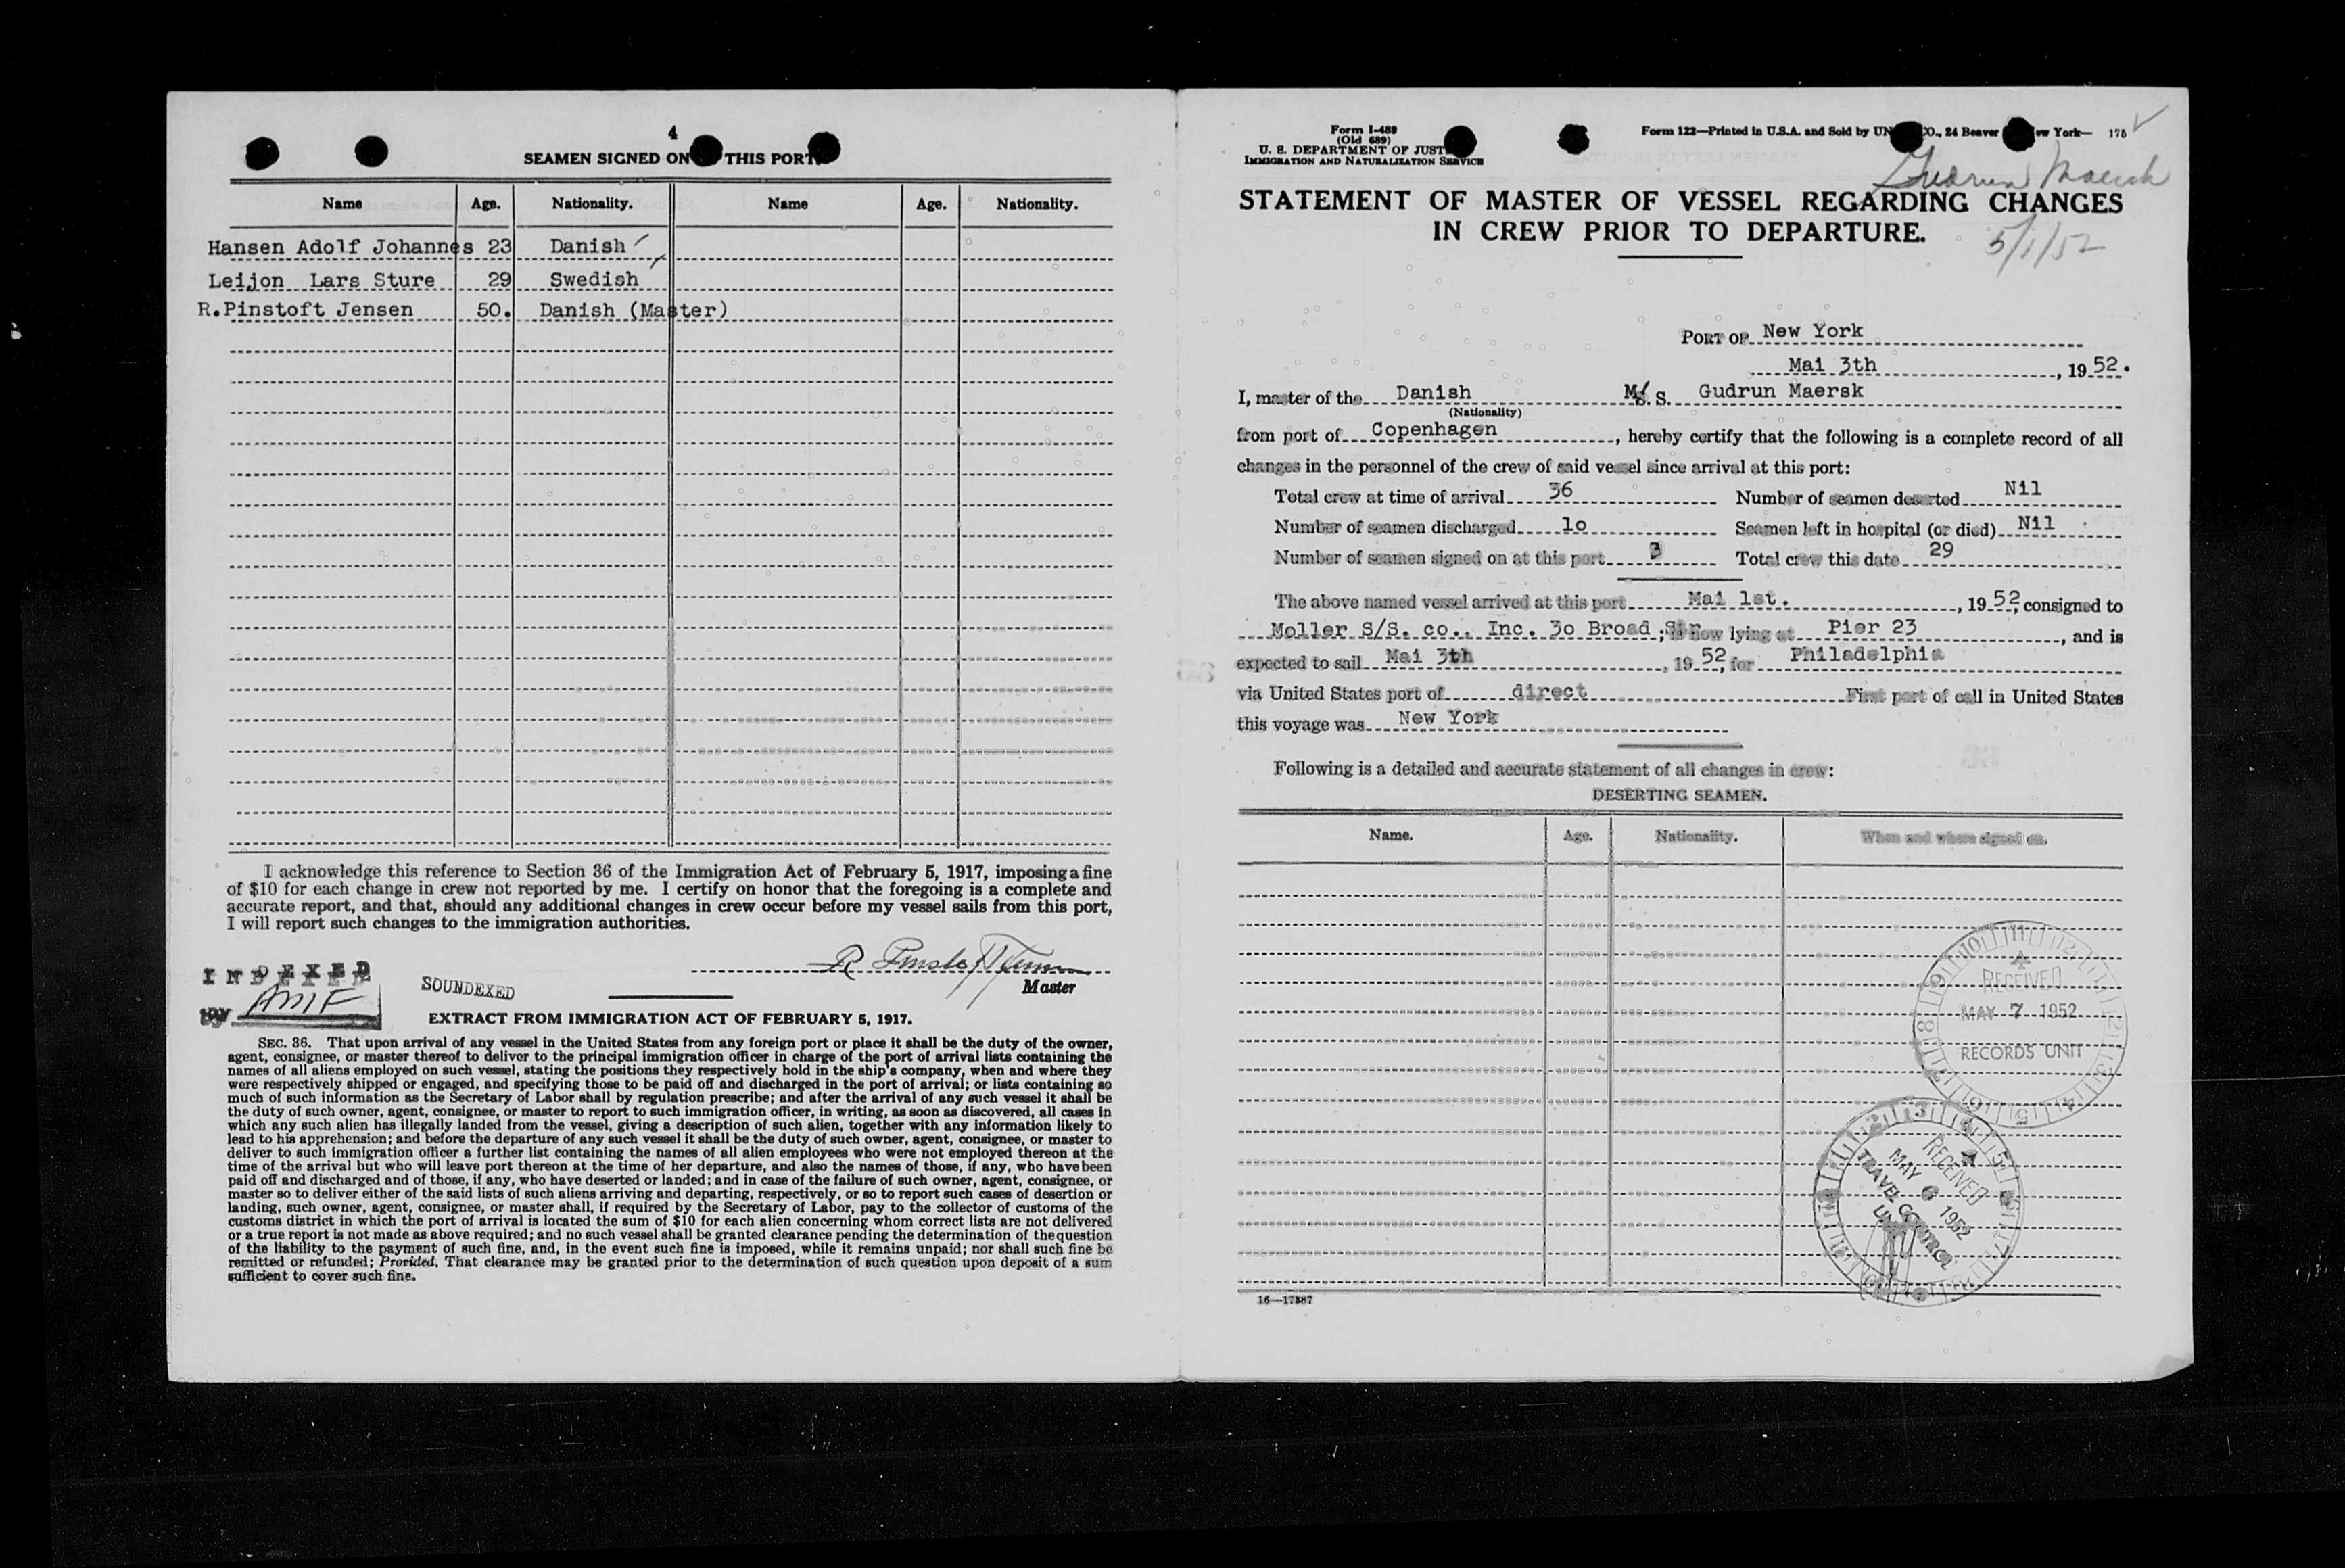 4
SEAMEN SIGNED ON THIS PORT
Name Age. Nationality. Name Age. Nationality.
Hansen Adolf Johannes 23 Danish
Leijon Lars Sture 29 Swedish
R.Pinstoft Jensen 50. Danish (Master)
I acknowledge this reference to Section 36 of the Immigration Act of February 5, 1917, imposing a fine
of $10 for each change in crew not reported by me. I certify on honor that the foregoing is a complete and
accurate report, and that, should any additional changes in crew occur before my vessel sails from this port,
I will report such changes to the immigration authorities.
Master
INDEXED
by AMF
SOUNDEXED
EXTRACT FROM IMMIGRATION ACT OF FEBRUARY 5, 1917.
SEC. 36. That upon arrival of any vessel in the United States from any foreign port or place it shall be the duty of the owner,
agent, consignee, or master thereof to deliver to the principal immigration officer in charge of the port of arrival lists containing the
names of all aliens employed on such vessel, stating the positions they respectively hold in the ship's company, when and where they
were respectively shipped or engaged, and specifying those to be paid off and discharged in the port of arrival; or lists containing so
much of such information as the Secretary of Labor shall by regulation prescribe; and after the arrival of any such vessel it shall be
the duty of such owner, agent, consignee, or master to report to such immigration officer, in writing, as soon as discovered, all cases in
which any such alien has illegally landed from the vessel, giving a description of such alien, together with any information likely to
lead to his apprehension; and before the departure of any such vessel it shall be the duty of such owner, agent, consignee, or master to
deliver to such immigration officer a further list containing the names of all alien employees who were not employed thereon at the
time of the arrival but who will leave port thereon at the time of her departure, and also the names of those, if any, who have been
paid off and discharged and of those, if any, who have deserted or landed; and in case of the failure of such owner, agent, consignee, or
master so to deliver either of the said lists of such aliens arriving and departing, respectively, or so to report such cases of desertion or
landing, such owner, agent, consignee, or master shall, if required by the Secretary of Labor, pay to the collector of customs of the
customs district in which the port of arrival is located the sum of $10 for each alien concerning whom correct lists are not delivered
or a true report is not made as above required; and no such vessel shall be granted clearance pending the determination of the question
of the liability to the payment of such fine, and, in the event such fine is imposed, while it remains unpaid; nor shall such fine be
remitted or refunded; Provided, That clearance may be granted prior to the determination of such question upon deposit of a sum
sufficient to cover such fine.
Form I-489
(Old 689)
U. S. DEPARTMENT OF JUST
IMMIGRATION AND NATURALIZATION SERVICE
Form 122—Printed in U.S.A. and Sold by UN CO., 24 Beaver ew York— 175
Gudrun Maersk
STATEMENT OF MASTER OF VESSEL REGARDING CHANGES
IN CREW PRIOR TO DEPARTURE.
5/1/52
PORT OF New York
Mai 3th, 1952.
I, master of the Danish M/S. S. Gudrun Maersk
(Nationality)
from port of Copenhagen, hereby certify that the following is a complete record of all
changes in the personnel of the crew of said vessel since arrival at this port:
Total crew at time of arrival 36 Number of seamen deserted Nil
Number of seamen discharged 1o Seamen left in hospital (or died) Nil
Number of seamen signed on at this port 3 Total crew this date 29
The above named vessel arrived at this port Mai 1st., 1952, consigned to
Moller S/S. co., Inc. 3o Broad Str; is now lying at Pier 23, and is
expected to sail Mai 3th, 1952, for Philadelphia
via United States port of direct First port of call in United States
this voyage was New York
Following is a detailed and accurate statement of all changes in crew:
DESERTING SEAMEN.
Name. Age. Nationality. When and where signed on.
RECEIVED
MAY 7 1952
RECORDS UNIT
RECEIVED
MAY 6 1952
TRAVEL CONTROL
UNIT
16—17387